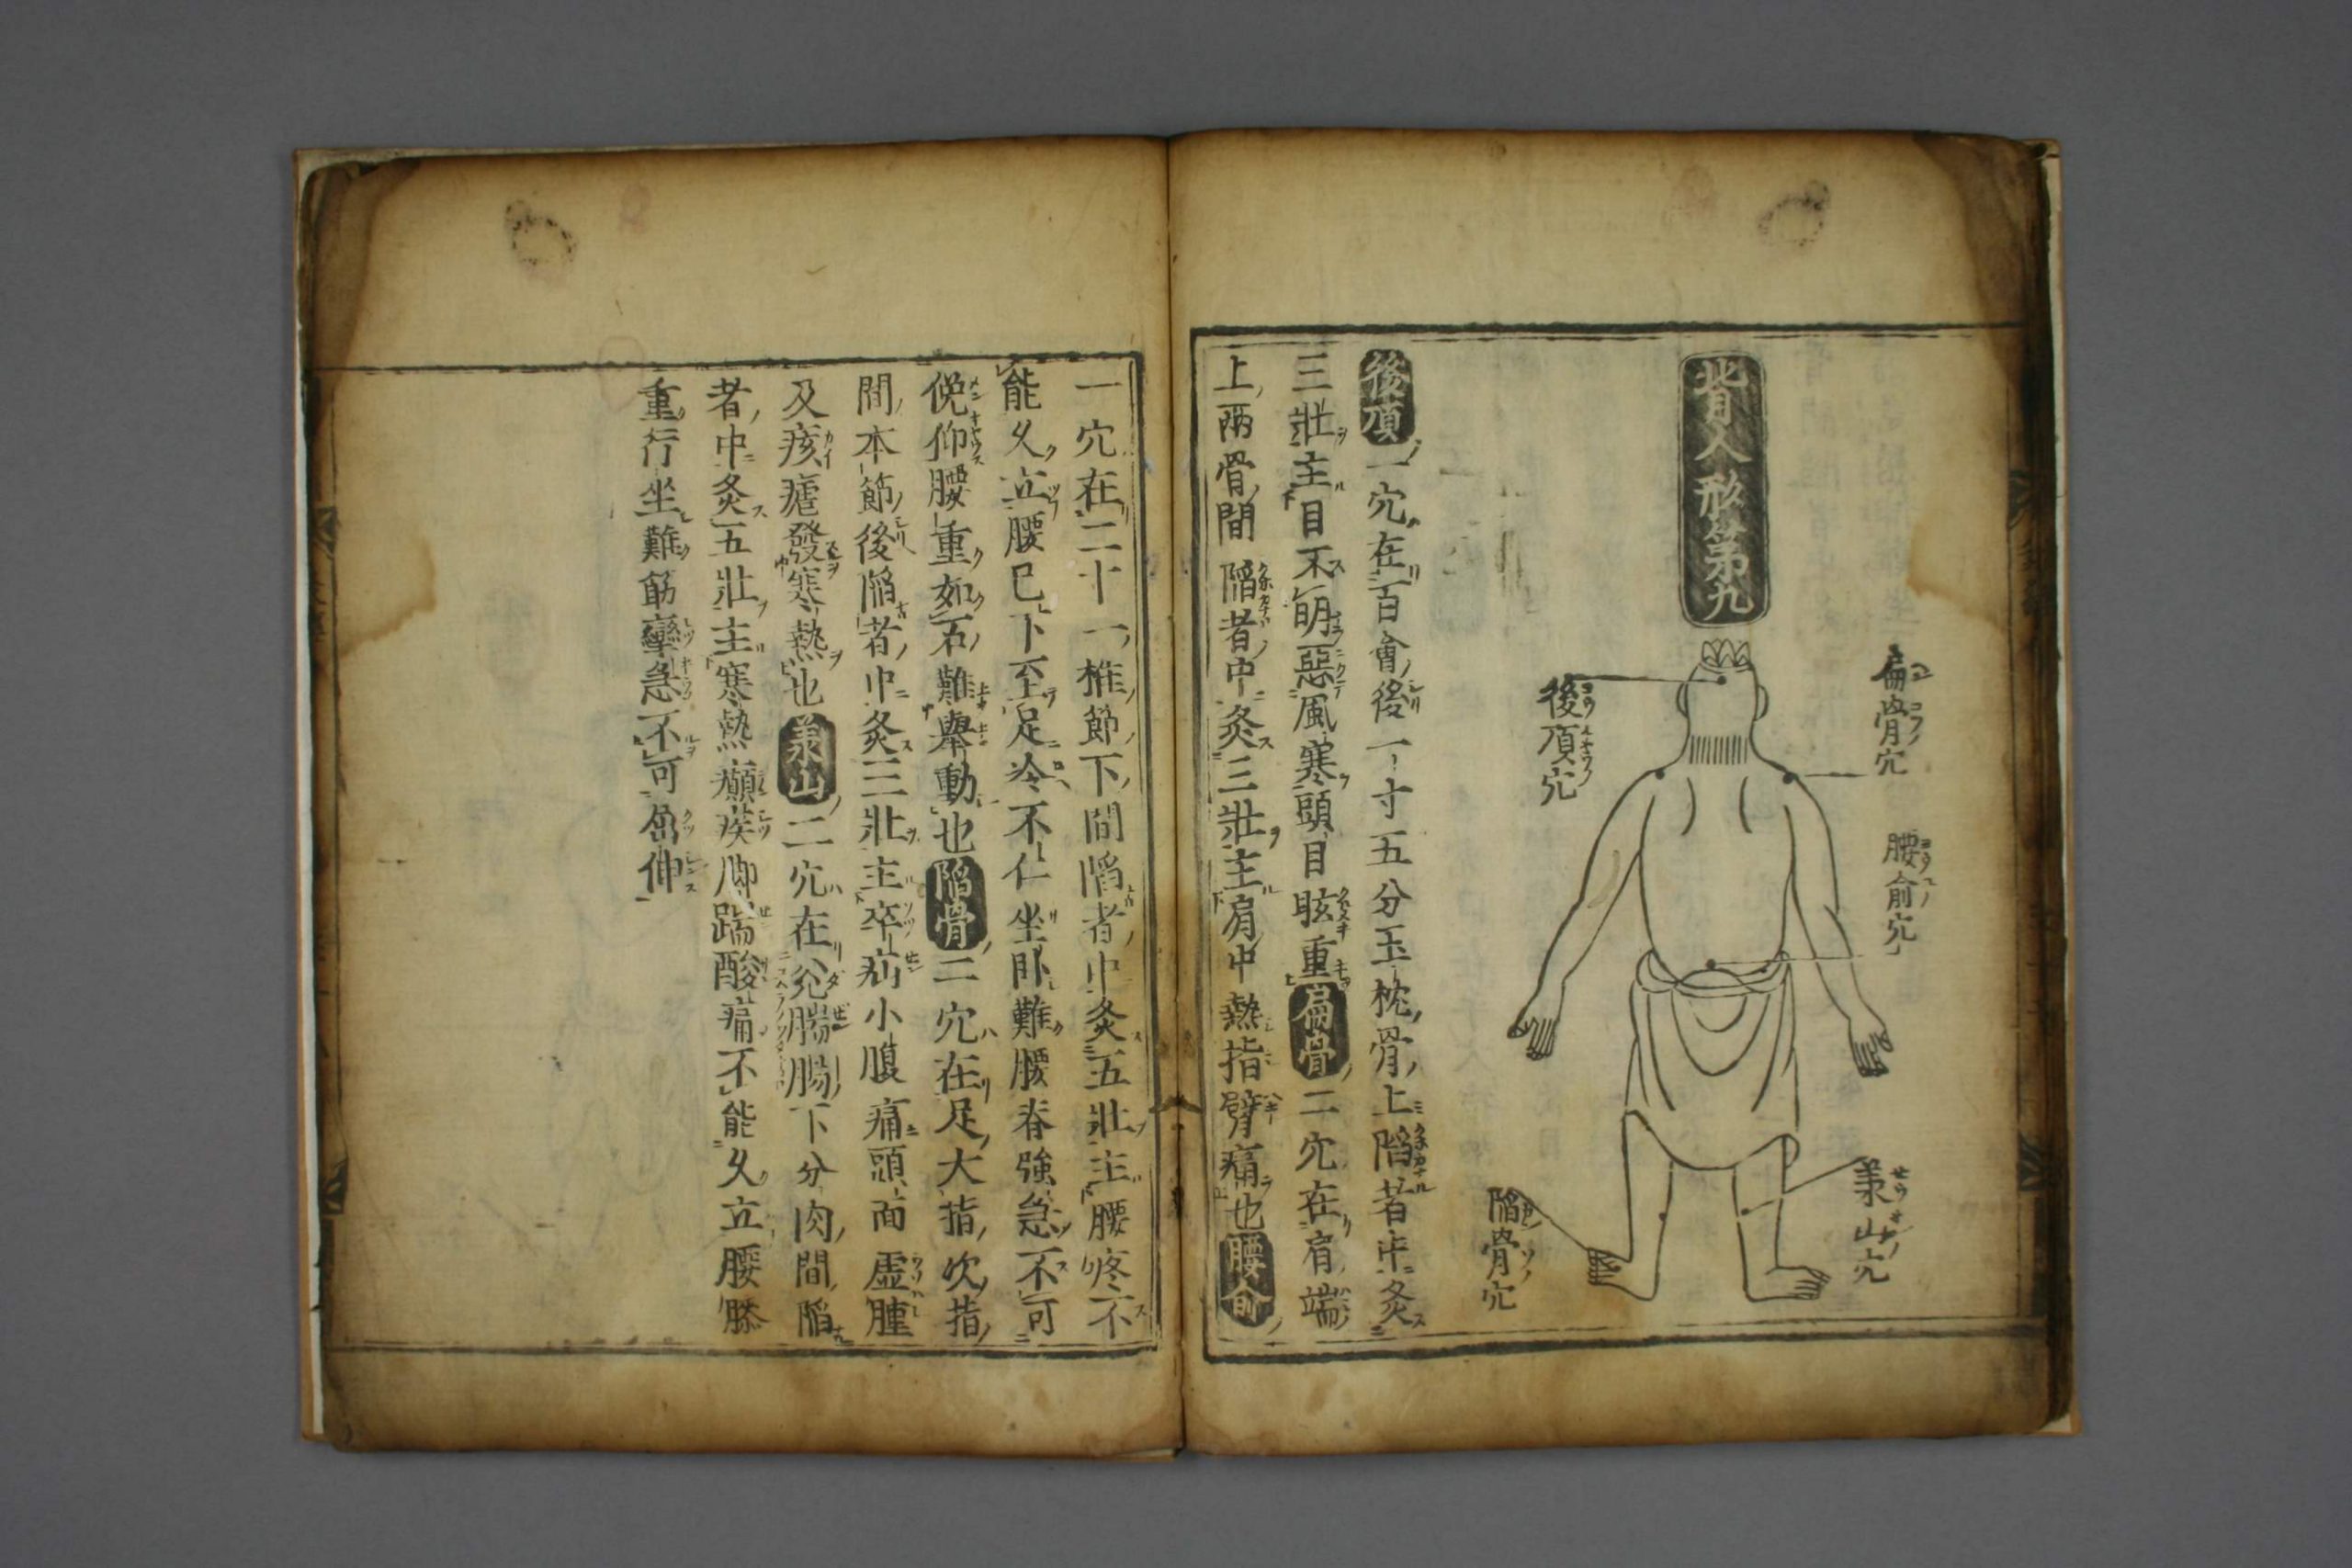 背人形第九
扁骨穴
腰俞穴
羕山穴
後頂穴
陷骨穴
後頂一穴在百會後一寸五分玉枕骨上陷者中灸
三壯主目不明惡風寒頭目眩重扁骨二穴在肩端
上兩骨間陷者中灸三壯主肩中熱指臂痛也腰俞
一穴在二十一椎節下間陷者中灸五壯主腰疼不
能久立腰已下至足冷不仁坐卧難腰脊強急不可
俛仰腰重如石難舉動也陷骨二穴在足大指次指
間本節後陷者中灸三壯主卒疝小腹痛頭面虛腫
及痎瘧發寒熱也羕山二穴在兊腨腸下分肉間陷
者中灸五壯主寒熱癲疾脚踹酸痛不能久立腰膝
重行坐難筋攣急不可屈伸